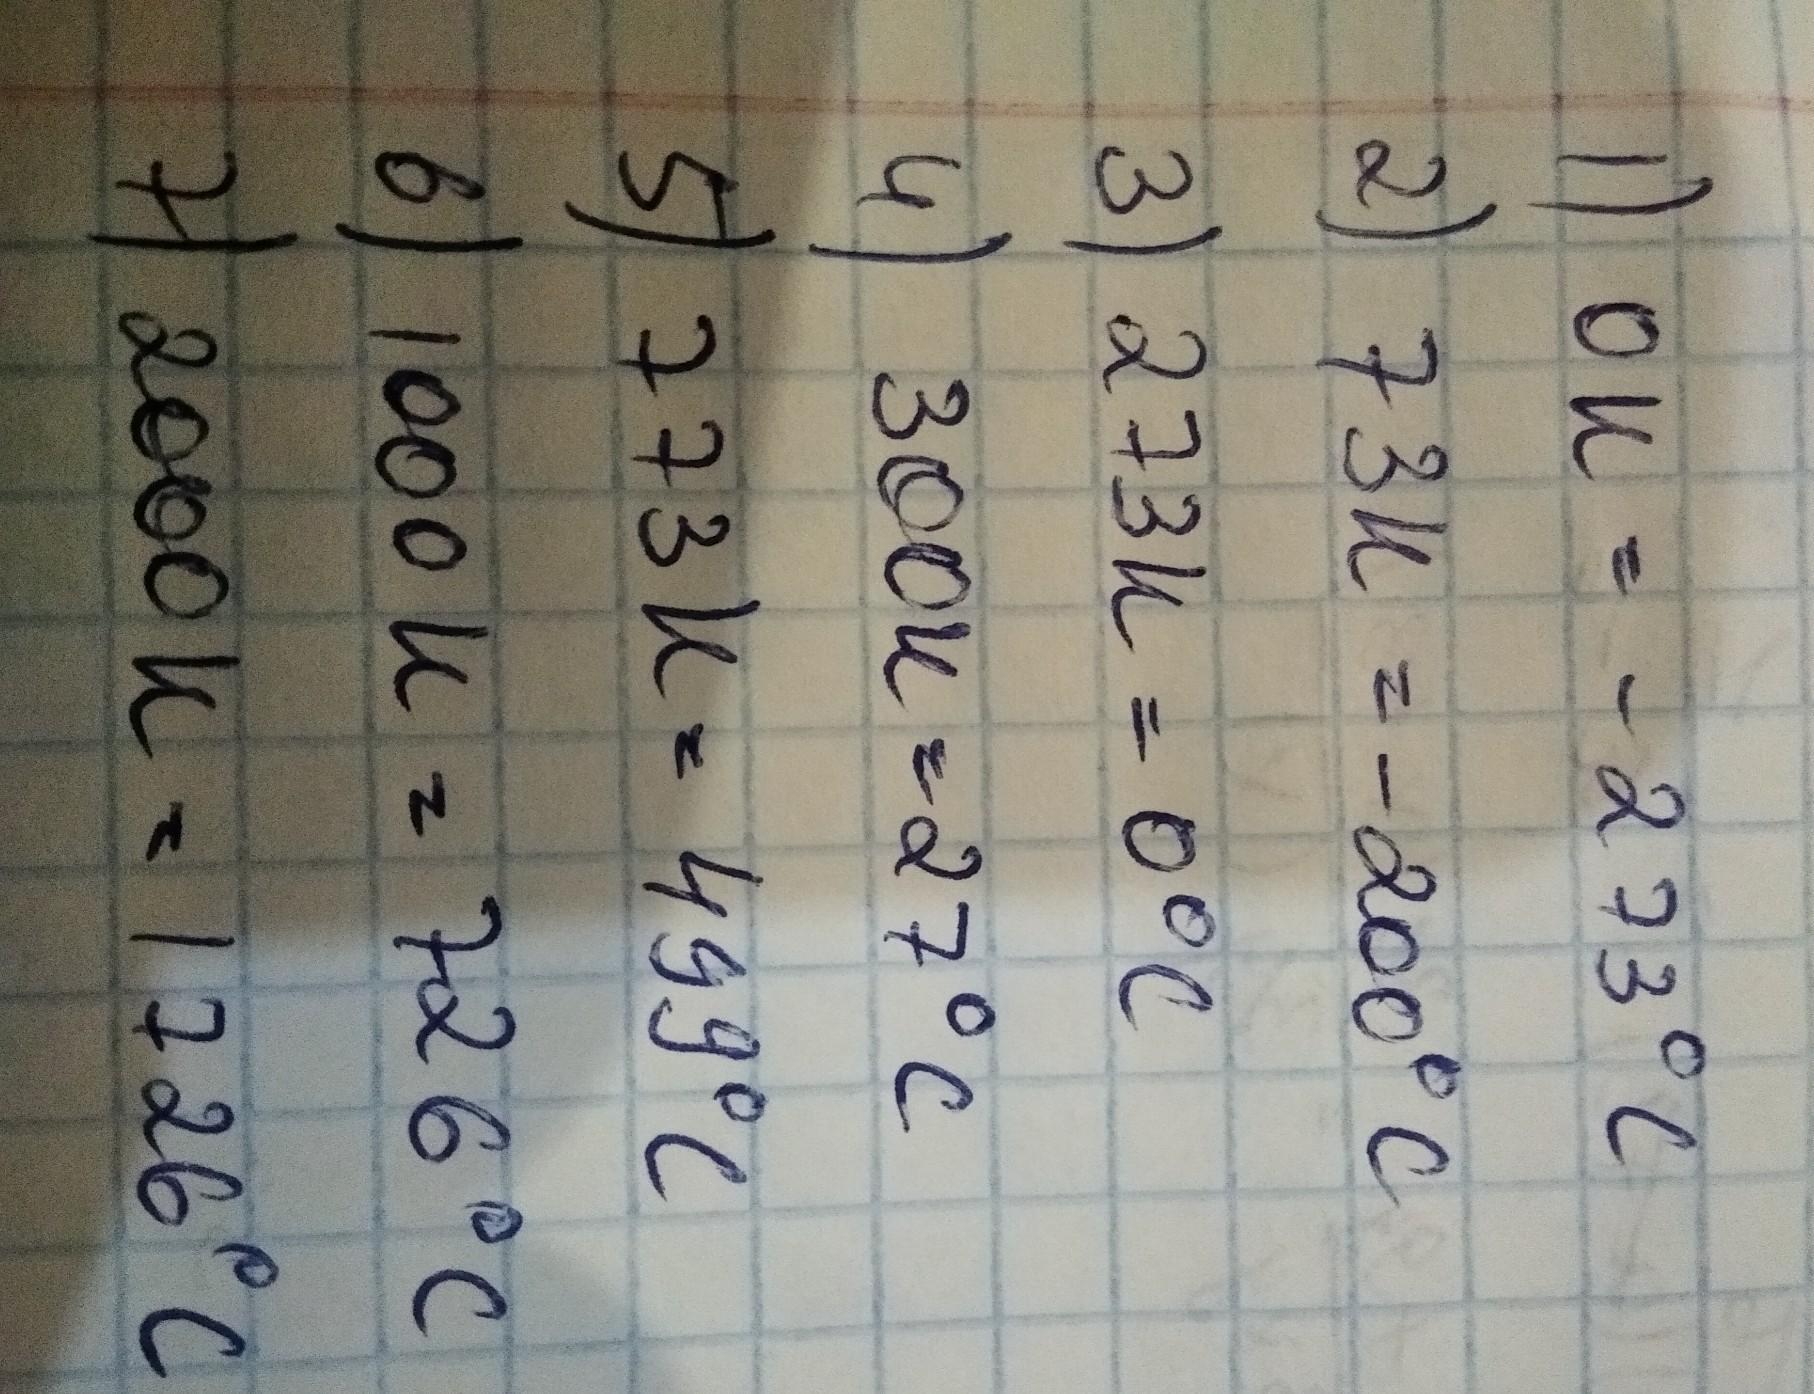 1) 0К = -273°C
2) 73К = -200°C
3) 273К = 0°C
4) 300К = 27°C
5) 773К = 499°C
6) 1000К = 726°C
7) 2000К = 1726°C